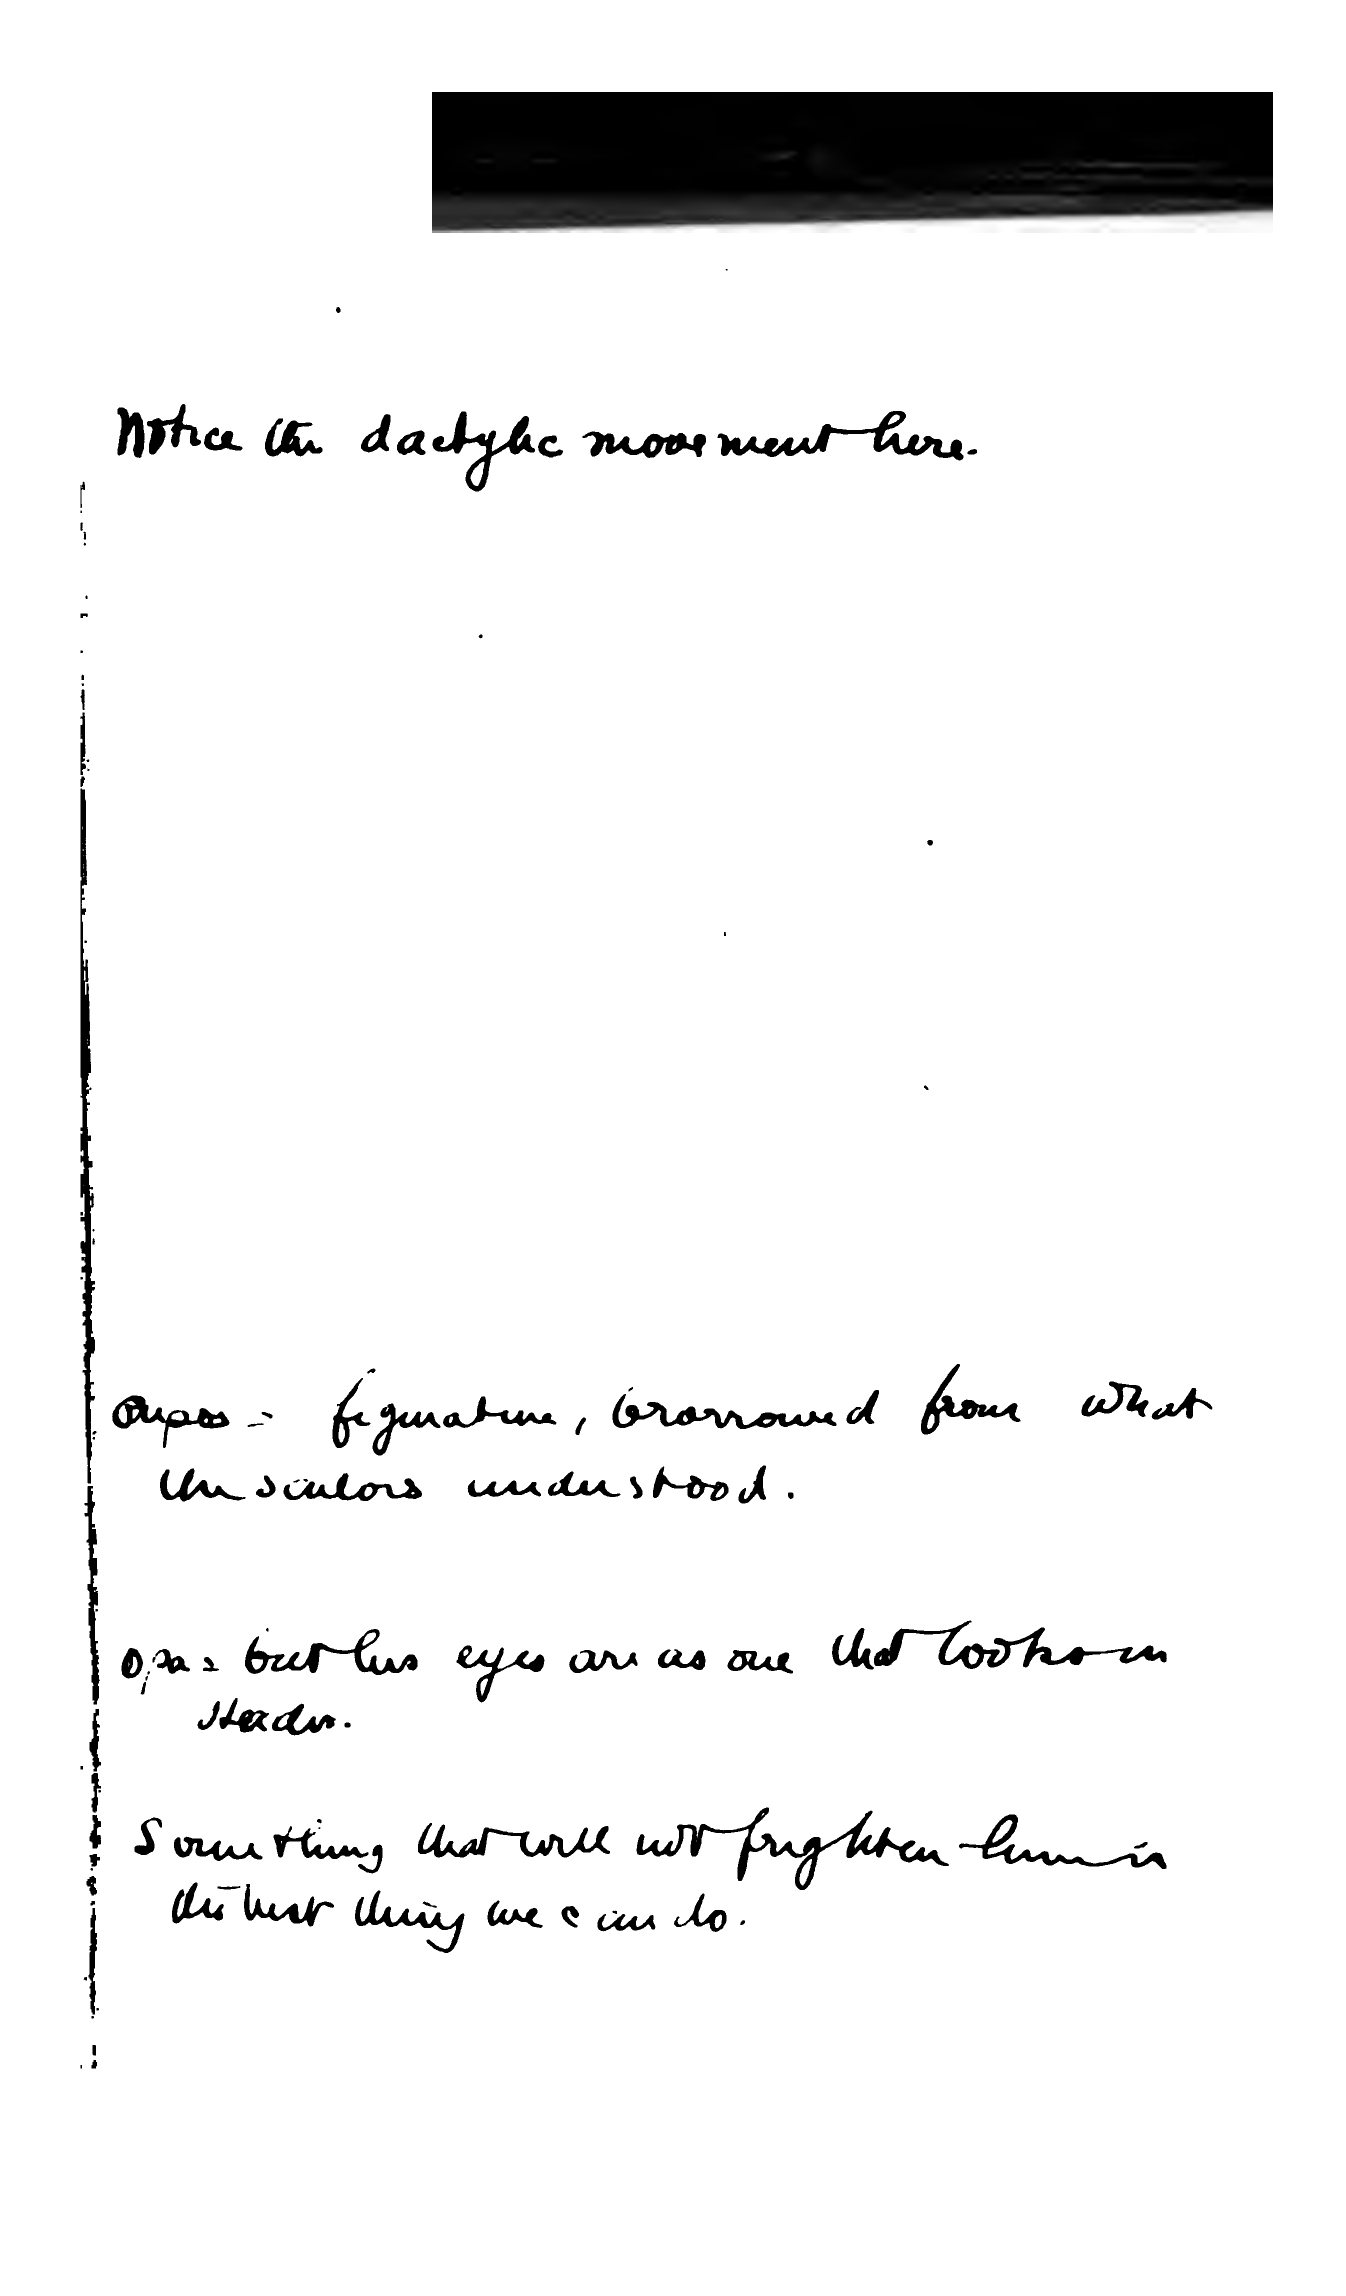 Notice the dactylic movement here.
ουρος = figurative, borrowed from what
the sailors understood.
ορα = but his eyes are as one that looks on
Something that will not frighten him is
the best thing we can do.